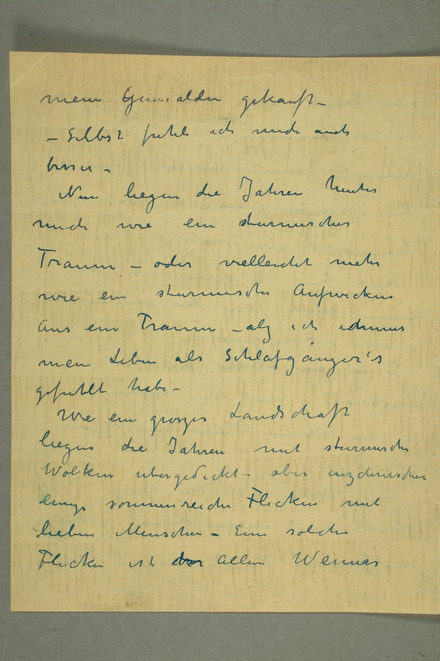 mein Gemälden gekauft –
– Selbst fühle ich mich auch
besser –
Nun liegen die Jahren hinter
mich wie ein sturmischer
Traum – oder vielleicht mehr
wie ein sturmische Aufwecken
aus ein Traum – als ich immer
mein Leben als Schlafgänger's
gefühlt habe –
Wie ein groszes Landschaft
liegen die Jahren mit sturmische
Wolken ubergedeckt – aber inzwischen
einige sonnenreiche Flecken mit
lieben Menschen – Ein solche
Flecken ist allen